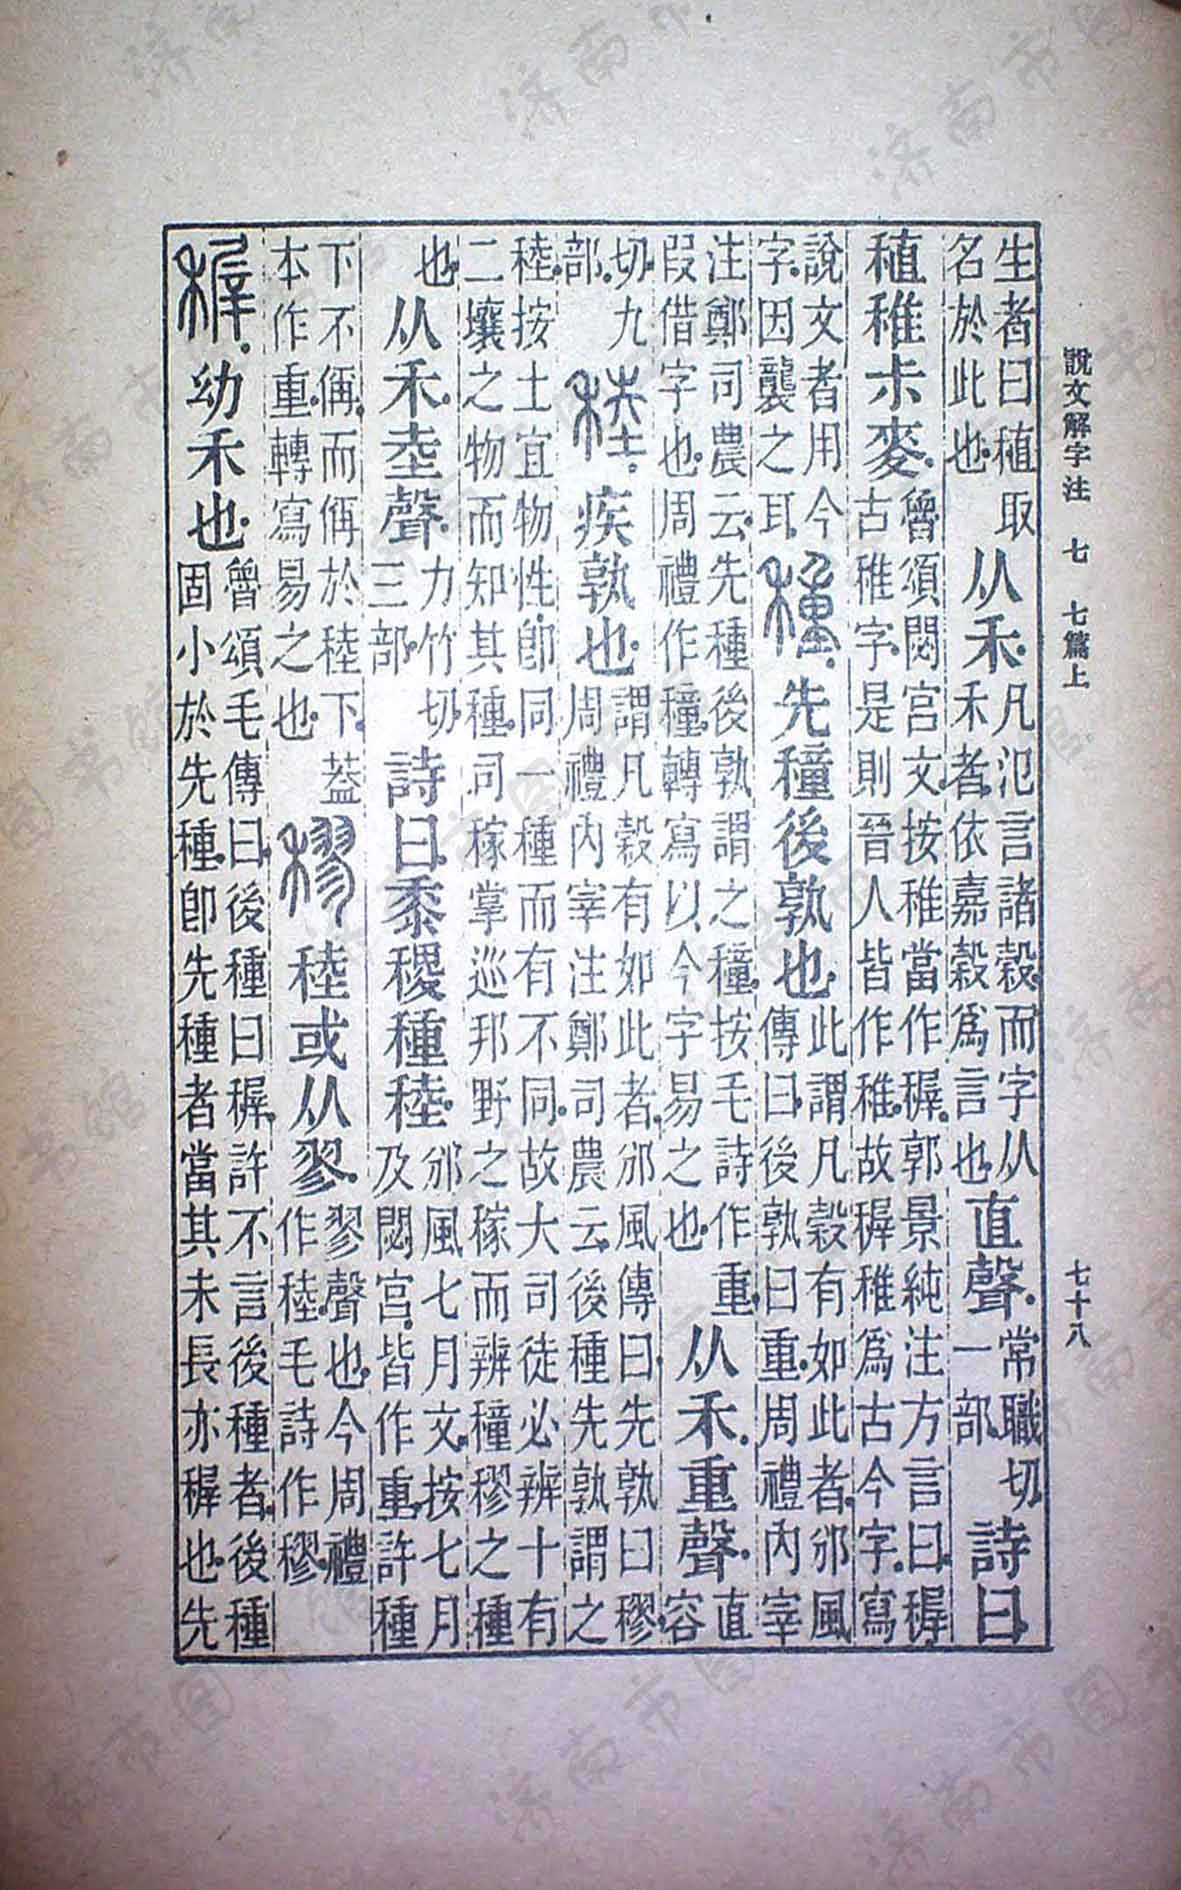 說文解字注 七 七篇上 七十八
生者曰稙取
名於此也
从禾
凡氾言諸穀而字从
禾者依嘉穀爲言也
直聲
常職切
一部
詩曰
稙稚尗麥
魯頌閟宮文按稚當作稺郭景純注方言曰稺
古稚字是則晉人皆作稚故稺稚爲古今字寫
說文者用今
字因襲之耳
穜先穜後孰也
此謂凡穀有如此者邠風
傳曰後孰曰重周禮內宰
注鄭司農云先種後孰謂之穜按毛詩作重
叚借字也周禮作穜轉寫以今字易之也
从禾重聲
直
容
切九
部
稑疾孰也
謂凡穀有如此者邠風傳曰先孰曰穋
周禮內宰注鄭司農云後種先孰謂之
稑按土宜物性卽同一種而有不同故大司徒必辨十有
二壤之物而知其種司稼掌巡邦野之稼而辨穜穋之種
也
从禾坴聲
力竹切
三部
詩曰黍稷種稑
邠風七月文按七月
及閟宮皆作重許種
下不偁而偁於稑下葢
本作重轉寫易之也
穋稑或从翏
翏聲也今周禮
作稑毛詩作穋
稺幼禾也
魯頌毛傳曰後種曰稺許不言後種者後種
固小於先種卽先種者當其未長亦稺也先
济南市图书馆